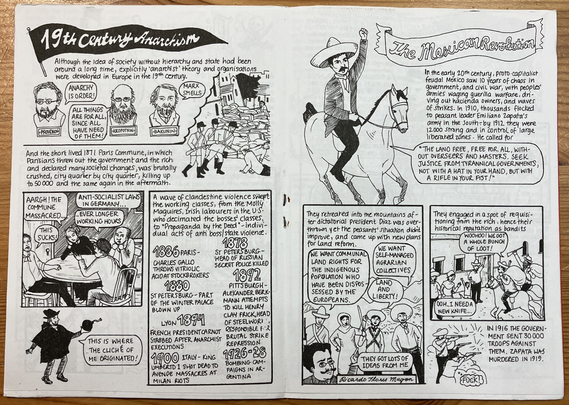 19th Century Anarchism
Although the idea of society without hierarchy and state had been
around a long time, explicitly 'anarchist' theory and organisations
were developed in Europe in the 19th century.
ANARCHY
IS ORDER!
ALL THINGS
ARE FOR ALL,
SINCE ALL
HAVE NEED
OF THEM!
MARX
SMELLS
PROUDHON
KROPOTKIN
BAKUNIN
And the short lived 1871 Paris Commune, in which
Parisians threw out the government and the rich
and declared many societal changes, was brutally
crushed, city quarter by city quarter, killing up
to 30 000 and the same again in the aftermath.
AARGH! THE
COMMUNE
MASSACRED...
ANTI-SOCIALIST LAWS
IN GERMANY...
THIS
SUCKS!
..EVER LONGER
WORKING HOURS
THIS IS WHERE
THE CLICHÉ OF
ME ORIGINATED!
A wave of clandestine violence swept
the working classes, from the Molly
Maguires, Irish labourers in the U.S.
who decimated the bosses' classes,
to "Propaganda by the Deed" - individ-
ual acts of anti boss/state violence.
1886 PARIS -
CHARLES GALLO
THROWS VITRIOLIC
ACID AT STOCKBROKERS
1880
ST PETERSBURG - PART
OF THE WINTER PALACE
BLOWN UP
LYON 1894
FRENCH PRESIDENT CARNOT
STABBED AFTER ANARCHIST
EXECUTIONS
1900 ITALY - KING
UMBERTO I SHOT DEAD TO
AVENGE MASSACRES AT
MILAN RIOTS
1878
ST PETERSBURG -
HEAD OF RUSSIAN
SECRET POLICE KILLED
1892
PITTSBURGH -
ALEXANDER BERK-
MANN ATTEMPTS
TO KILL HENRY
CLAY FRICK, HEAD
OF STEELWORKS
RESPONSIBLE 4
BRUTAL STRIKE
REPRESSION
1926-28
BOMBING CAM-
PAIGNS IN AR-
GENTINA
The Mexican Revolution
In the early 20th century, proto capitalist
feudal Mexico saw 10 years of chaos in
government, and civil war, with peoples'
armies waging guerilla warfare, dri-
ving out hacienda owners, and waves
of strikes. In 1910, thousands flocked
to peasant leader Emiliano Zapata's
army in the South: by 1912, they were
12,000 strong and in control of large
liberated zones. He called for
"THE LAND FREE, FREE FOR ALL, WITH-
OUT OVERSEERS AND MASTERS. SEEK
JUSTICE FROM TYRANNICAL GOVERNMENTS,
NOT WITH A HAT IN YOUR HAND, BUT WITH
A RIFLE IN YOUR FIST!"
They retreated into the mountains af-
ter dictatorial president Diaz was over-
thrown yet the peasants' situation didn't
improve, and came up with new plans
for land reform.
WE WANT COMMUNAL
LAND RIGHTS FOR
THE INDIGENOUS
POPULATION WHO
HAVE BEEN DISPOS-
SESSED BY THE
EUROPEANS.
WE WANT
SELF-MANAGED
AGRARIAN
COLLECTIVES
LAND
AND
LIBERTY!
THEY GOT LOTS OF
IDEAS FROM ME
Ricardo Flores Magon
They engaged in a spot of requisi-
tioning from the rich, hence their
historical reputation as bandits
WOOHOO! WE GOT
A WHOLE BUNCH
OF LOOT!
OOH, I NEED A
NEW KNIFE...
IN 1916 THE GOVERN-
MENT SENT 30 000
TROOPS AGAINST
THEM. ZAPATA WAS
MURDERED IN 1919.
FUCK!